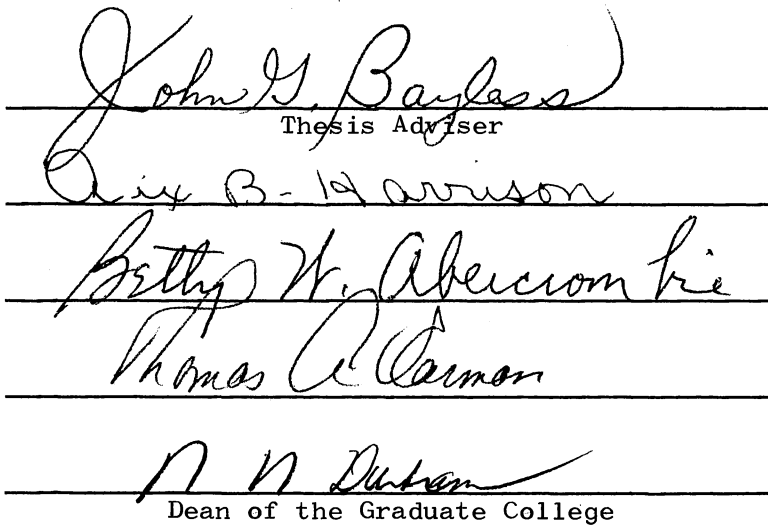 John G. Bayless
Thesis Adviser
Aix B- Harrison
Betty W. Abercrombie
Thomas A Karman
N N Durham
Dean of the Graduate College